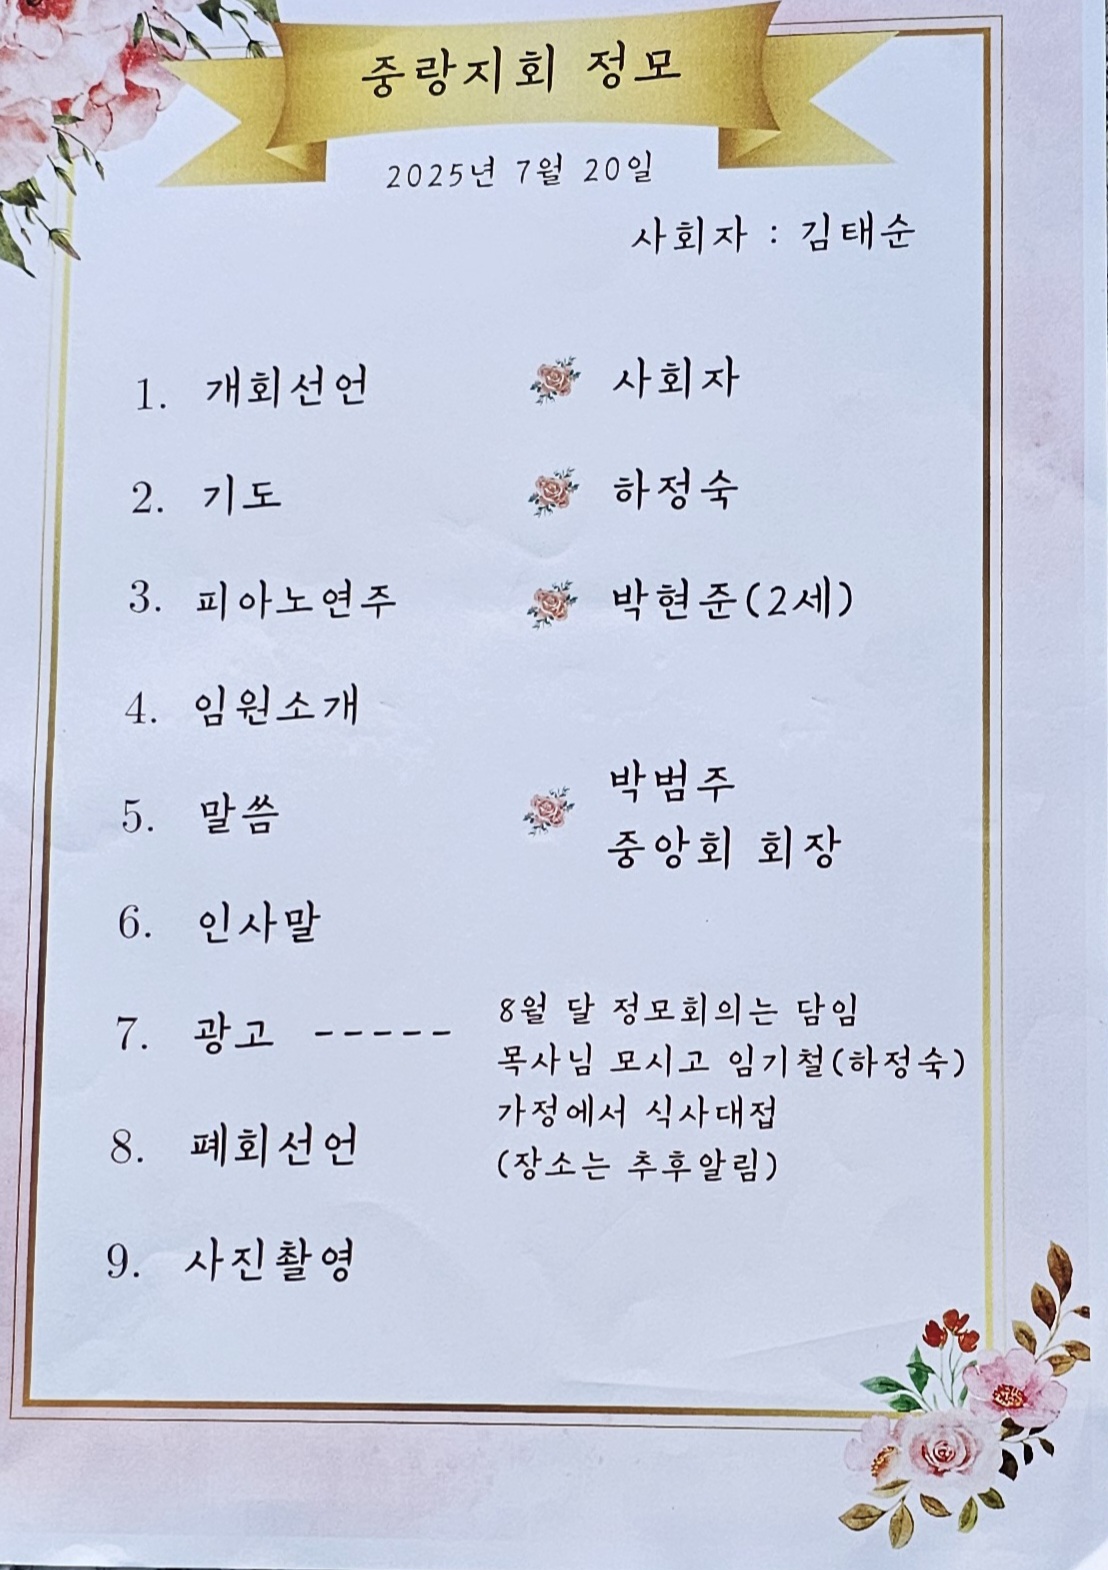 중랑지회 정모
2025년 7월 20일
사회자 : 김태순
1. 개회선언 사회자
2. 기도 하정숙
3. 피아노연주 박현준(2세)
4. 임원소개
5. 말씀 박범주
중앙회 회장
6. 인사말
7. 광고 ----- 8월 달 정모회의는 담임
목사님 모시고 임기철(하정숙)
가정에서 식사대접
(장소는 추후알림)
8. 폐회선언
9. 사진촬영